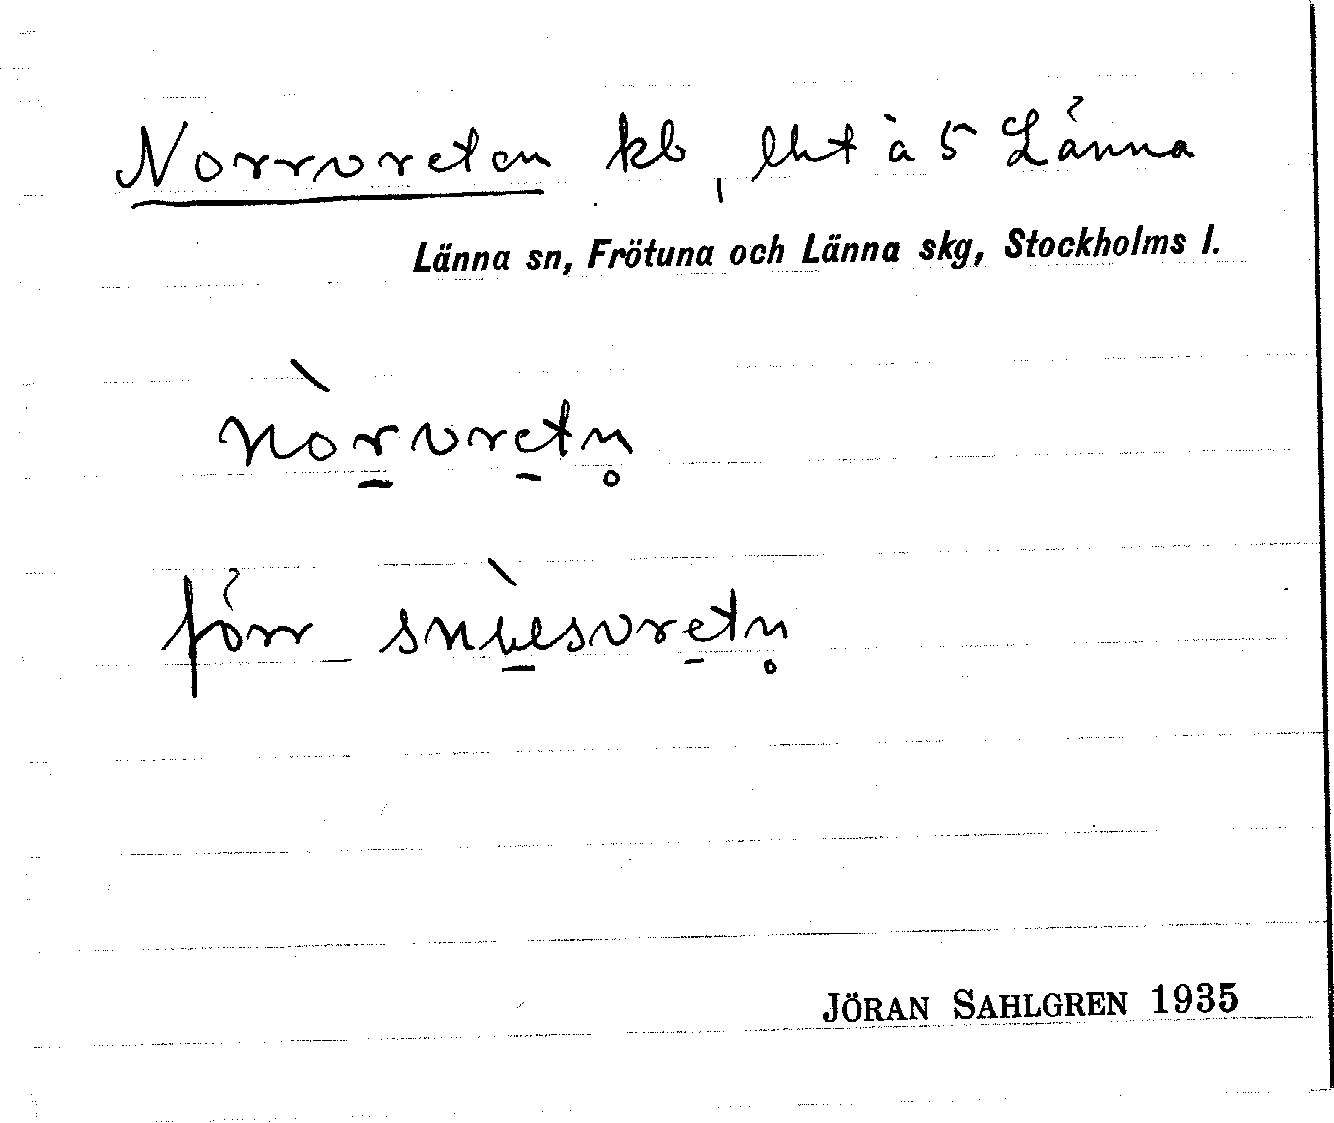 Norrvreten kb, lht å 5 Länna
Länna sn, Frötuna och Länna skg, Stockholms l.
nòr̠vre̠tn̥
förr snìḻesvre̠tn̥
JÖRAN SAHLGREN 1935